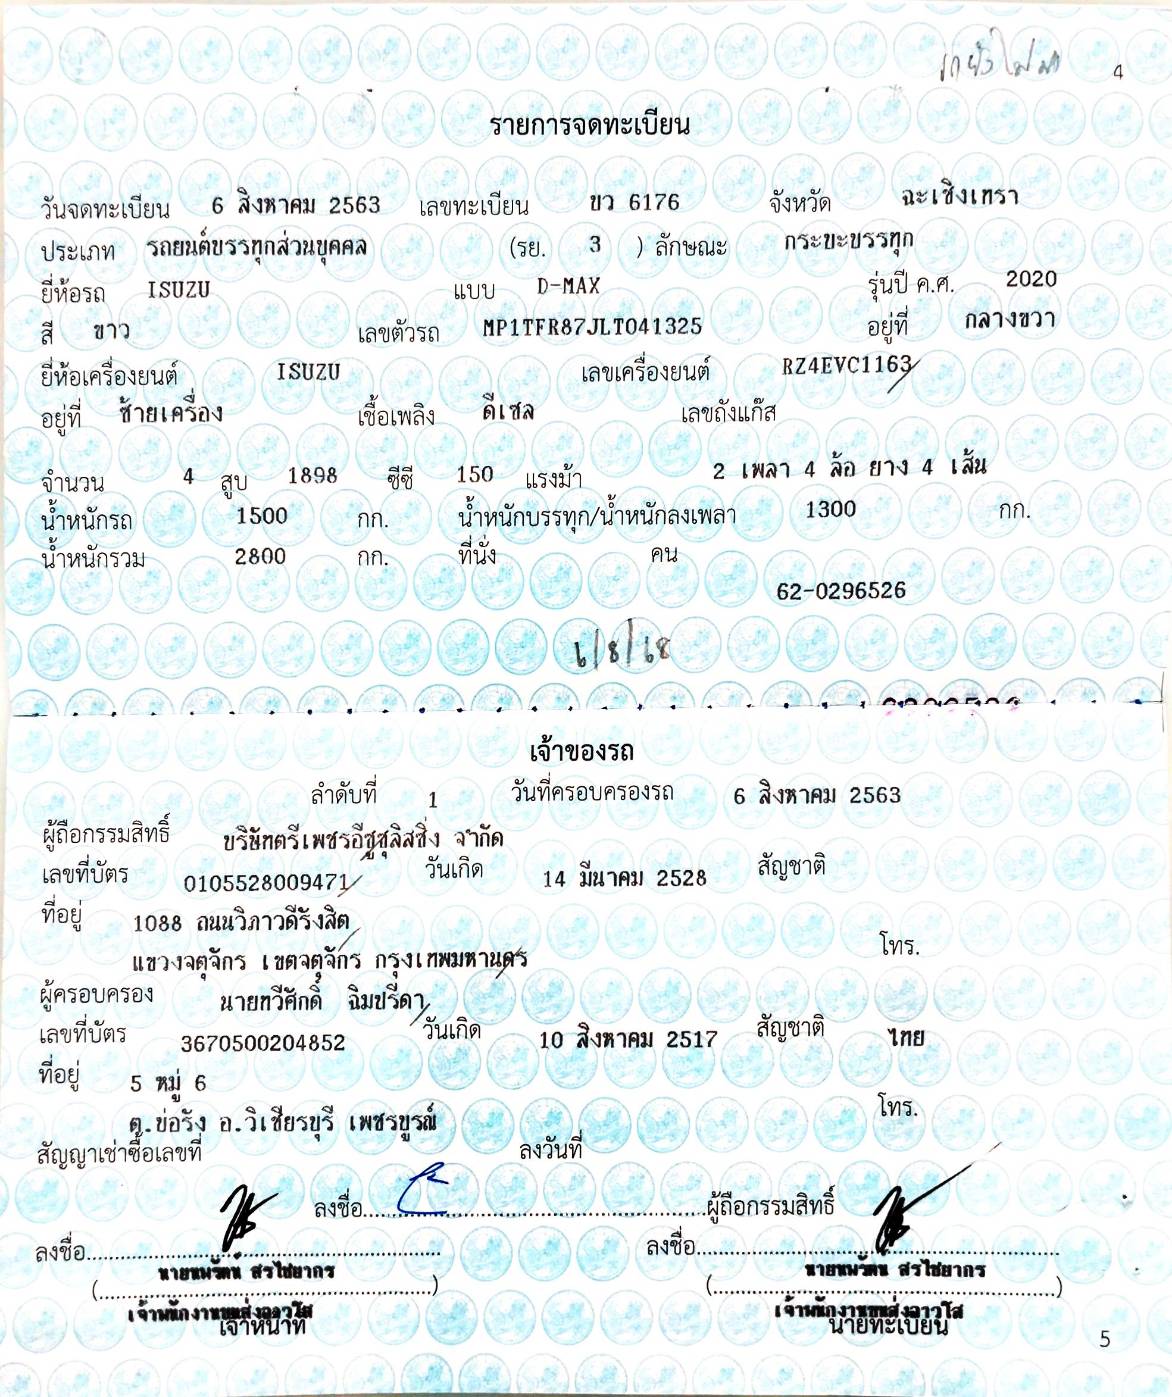 4
รายการจดทะเบียน
วันจดทะเบียน 6 สิงหาคม 2563 เลขทะเบียน ขว 6176 จังหวัด ฉะเชิงเทรา
ประเภท รถยนต์บรรทุกส่วนบุคคล (รย. 3 ) ลักษณะ กระบะบรรทุก
ยี่ห้อรถ ISUZU แบบ D-MAX รุ่นปี ค.ศ. 2020
สี ขาว เลขตัวรถ MP1TFR87JLT041325 อยู่ที่ กลางขวา
ยี่ห้อเครื่องยนต์ ISUZU เลขเครื่องยนต์ RZ4EVC1163
อยู่ที่ ซ้ายเครื่อง เชื้อเพลิง ดีเซล เลขถังแก๊ส
จำนวน 4 สูบ 1898 ซีซี 150 แรงม้า 2 เพลา 4 ล้อ ยาง 4 เส้น
น้ำหนักรถ 1500 กก. น้ำหนักบรรทุก/น้ำหนักลงเพลา 1300 กก.
น้ำหนักรวม 2800 กก. ที่นั่ง คน
62-0296526
6/8/68
เจ้าของรถ
ลำดับที่ 1 วันที่ครอบครองรถ 6 สิงหาคม 2563
ผู้ถือกรรมสิทธิ์ บริษัทตรีเพชรอีซูซุลิสซิ่ง จำกัด
เลขที่บัตร 0105528009471 วันเกิด 14 มีนาคม 2528 สัญชาติ
ที่อยู่ 1088 ถนนวิภาวดีรังสิต
แขวงจตุจักร เขตจตุจักร กรุงเทพมหานคร โทร.
ผู้ครอบครอง นายทวีศักดิ์ ฉิมปรีดา
เลขที่บัตร 3670500204852 วันเกิด 10 สิงหาคม 2517 สัญชาติ ไทย
ที่อยู่ 5 หมู่ 6
ต.บ่อรัง อ.วิเชียรบุรี เพชรบูรณ์ โทร.
สัญญาเช่าซื้อเลขที่ ลงวันที่
ลงชื่อ ผู้ถือกรรมสิทธิ์
ลงชื่อ ลงชื่อ
นายนพรัตน์ สรไชยากร นายนพรัตน์ สรไชยากร
เจ้าพนักงานขนส่งอาวุโส เจ้าพนักงานขนส่งอาวุโส
เจ้าหน้าที่ นายทะเบียน
5